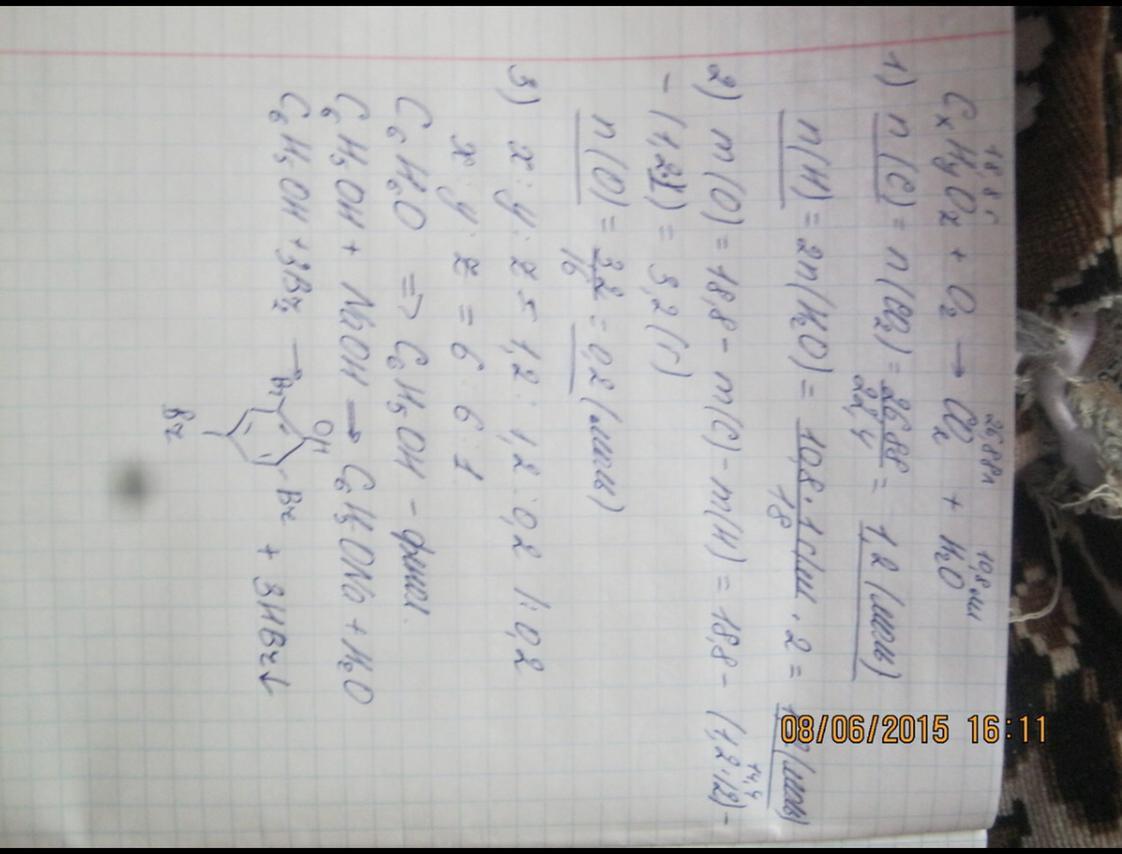 18,8 г 26,88 л 10,8 мл
CxHyOz + O2 → CO2 + H2O
1) n(C) = n(CO2) = 26,88/22,4 = 1,2 (моль)
n(H) = 2n(H2O) = 10,8·1 г/мл/18 · 2 = 1,2 (моль)
14,4
2) m(O) = 18,8 - m(C) - m(H) = 18,8 - (1,2·12) -
- (1,2·1) = 3,2 (г)
n(O) = 3,2/16 = 0,2 (моль)
3) x : y : z = 1,2 : 1,2 : 0,2 | : 0,2
x : y : z = 6 : 6 : 1
C6H6O => C6H5OH - фенол.
C6H5OH + NaOH → C6H5ONa + H2O
C6H5OH + 3Br2 → + 3HBr↓
OH
Br
Br
Br
08/06/2015 16:11